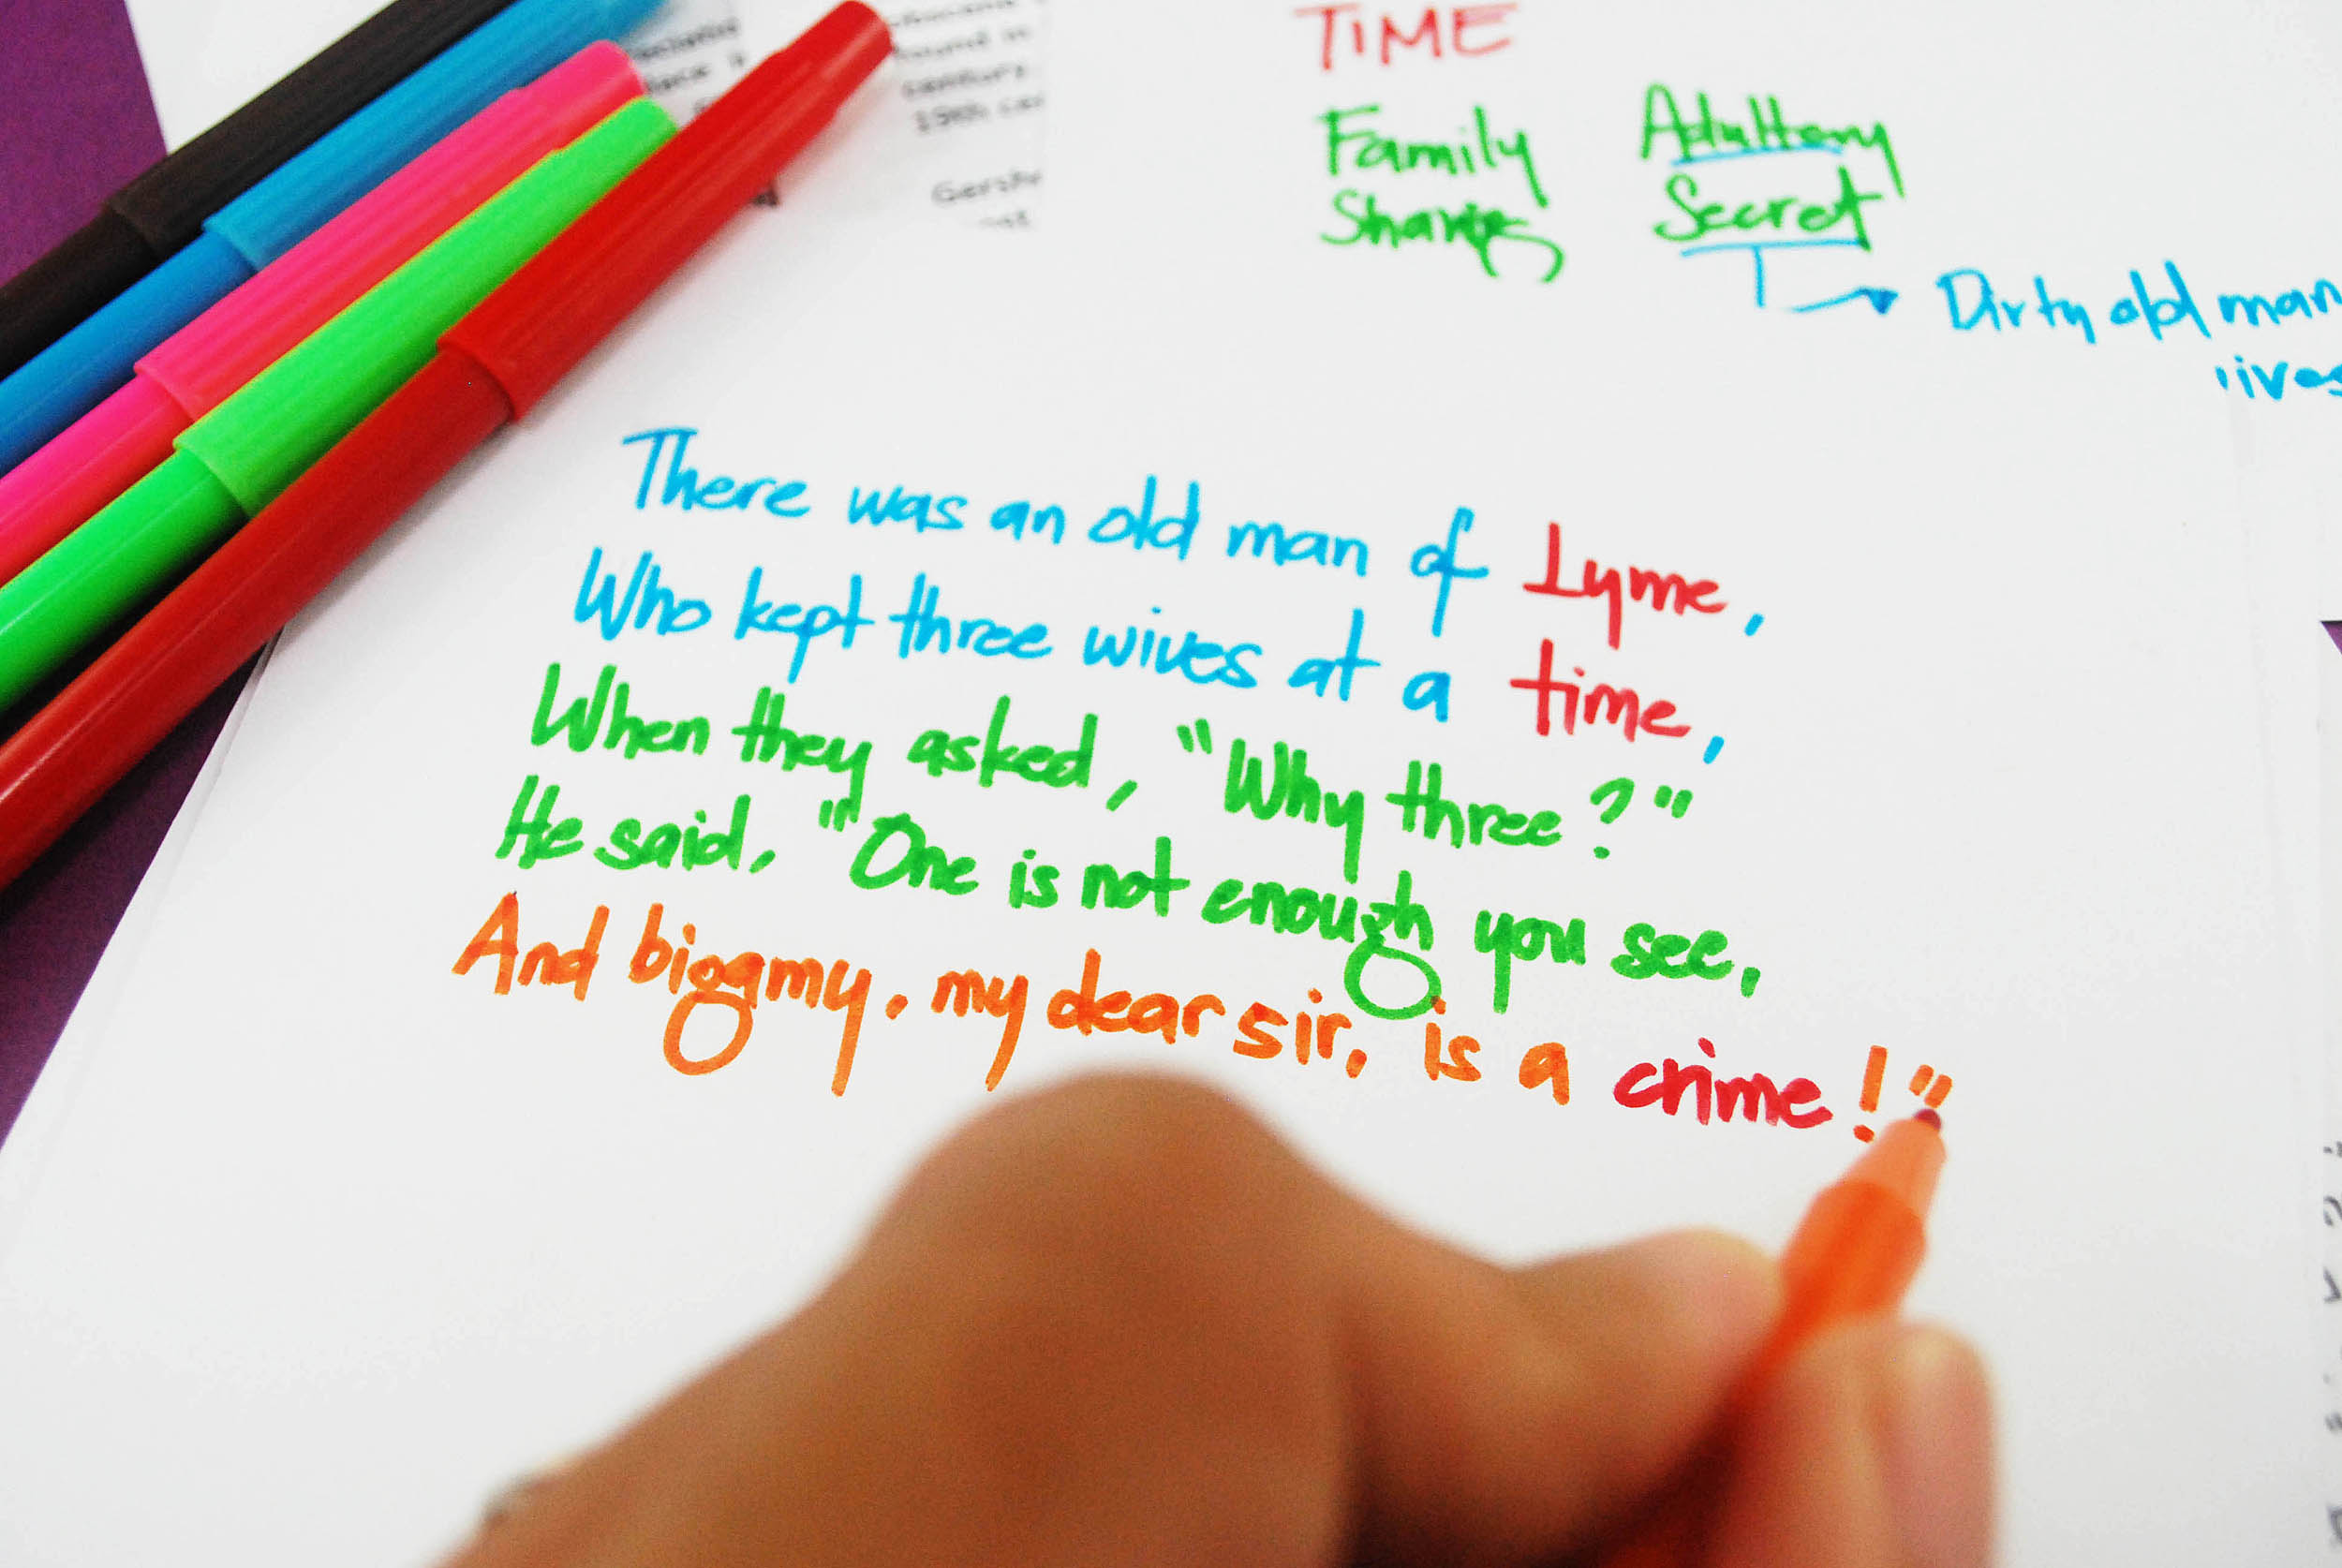 found in
century
19th
TIME
Family Adultery
Secret
Dirty old man
There was an old man of Lyme,
Who kept three wives at a time,
When they asked, "Why three?"
He said, "One is not enough you see,
And bigamy, my dear sir, is a crime!"